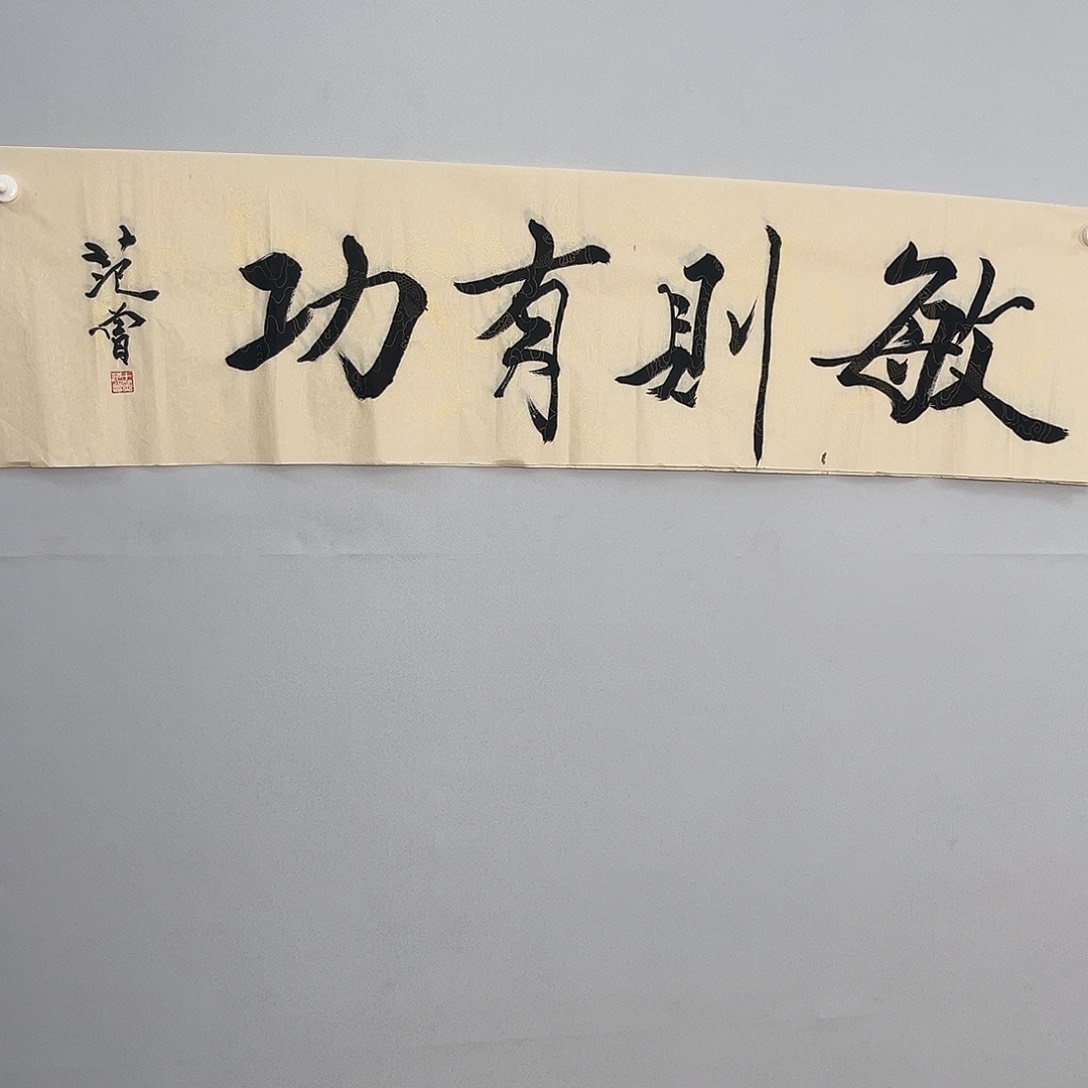 敏则有功
范曾